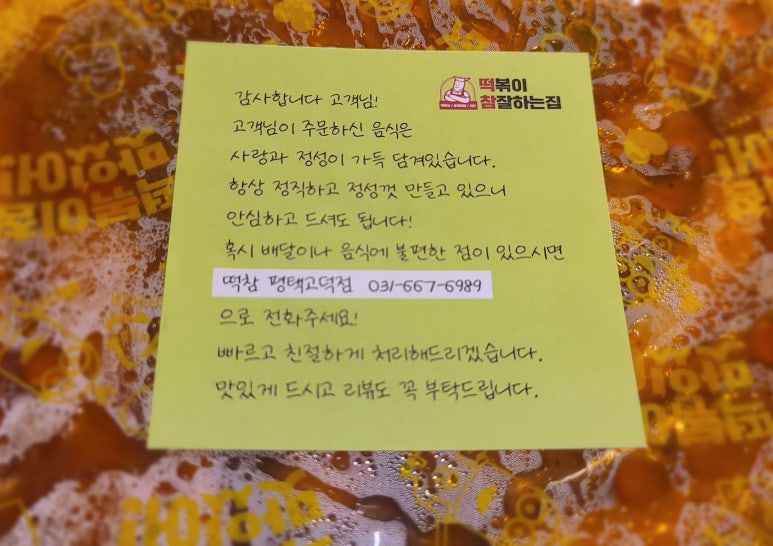 떡볶이
참잘하는집
감사합니다 고객님!
고객님이 주문하신 음식은
사랑과 정성이 가득 담겨있습니다.
항상 정직하고 정성껏 만들고 있으니
안심하고 드셔도 됩니다!
혹시 배달이나 음식에 불편한 점이 있으시면
떡참 평택고덕점 031-667-6989
으로 전화주세요!
빠르고 친절하게 처리해드리겠습니다.
맛있게 드시고 리뷰도 꼭 부탁드립니다.